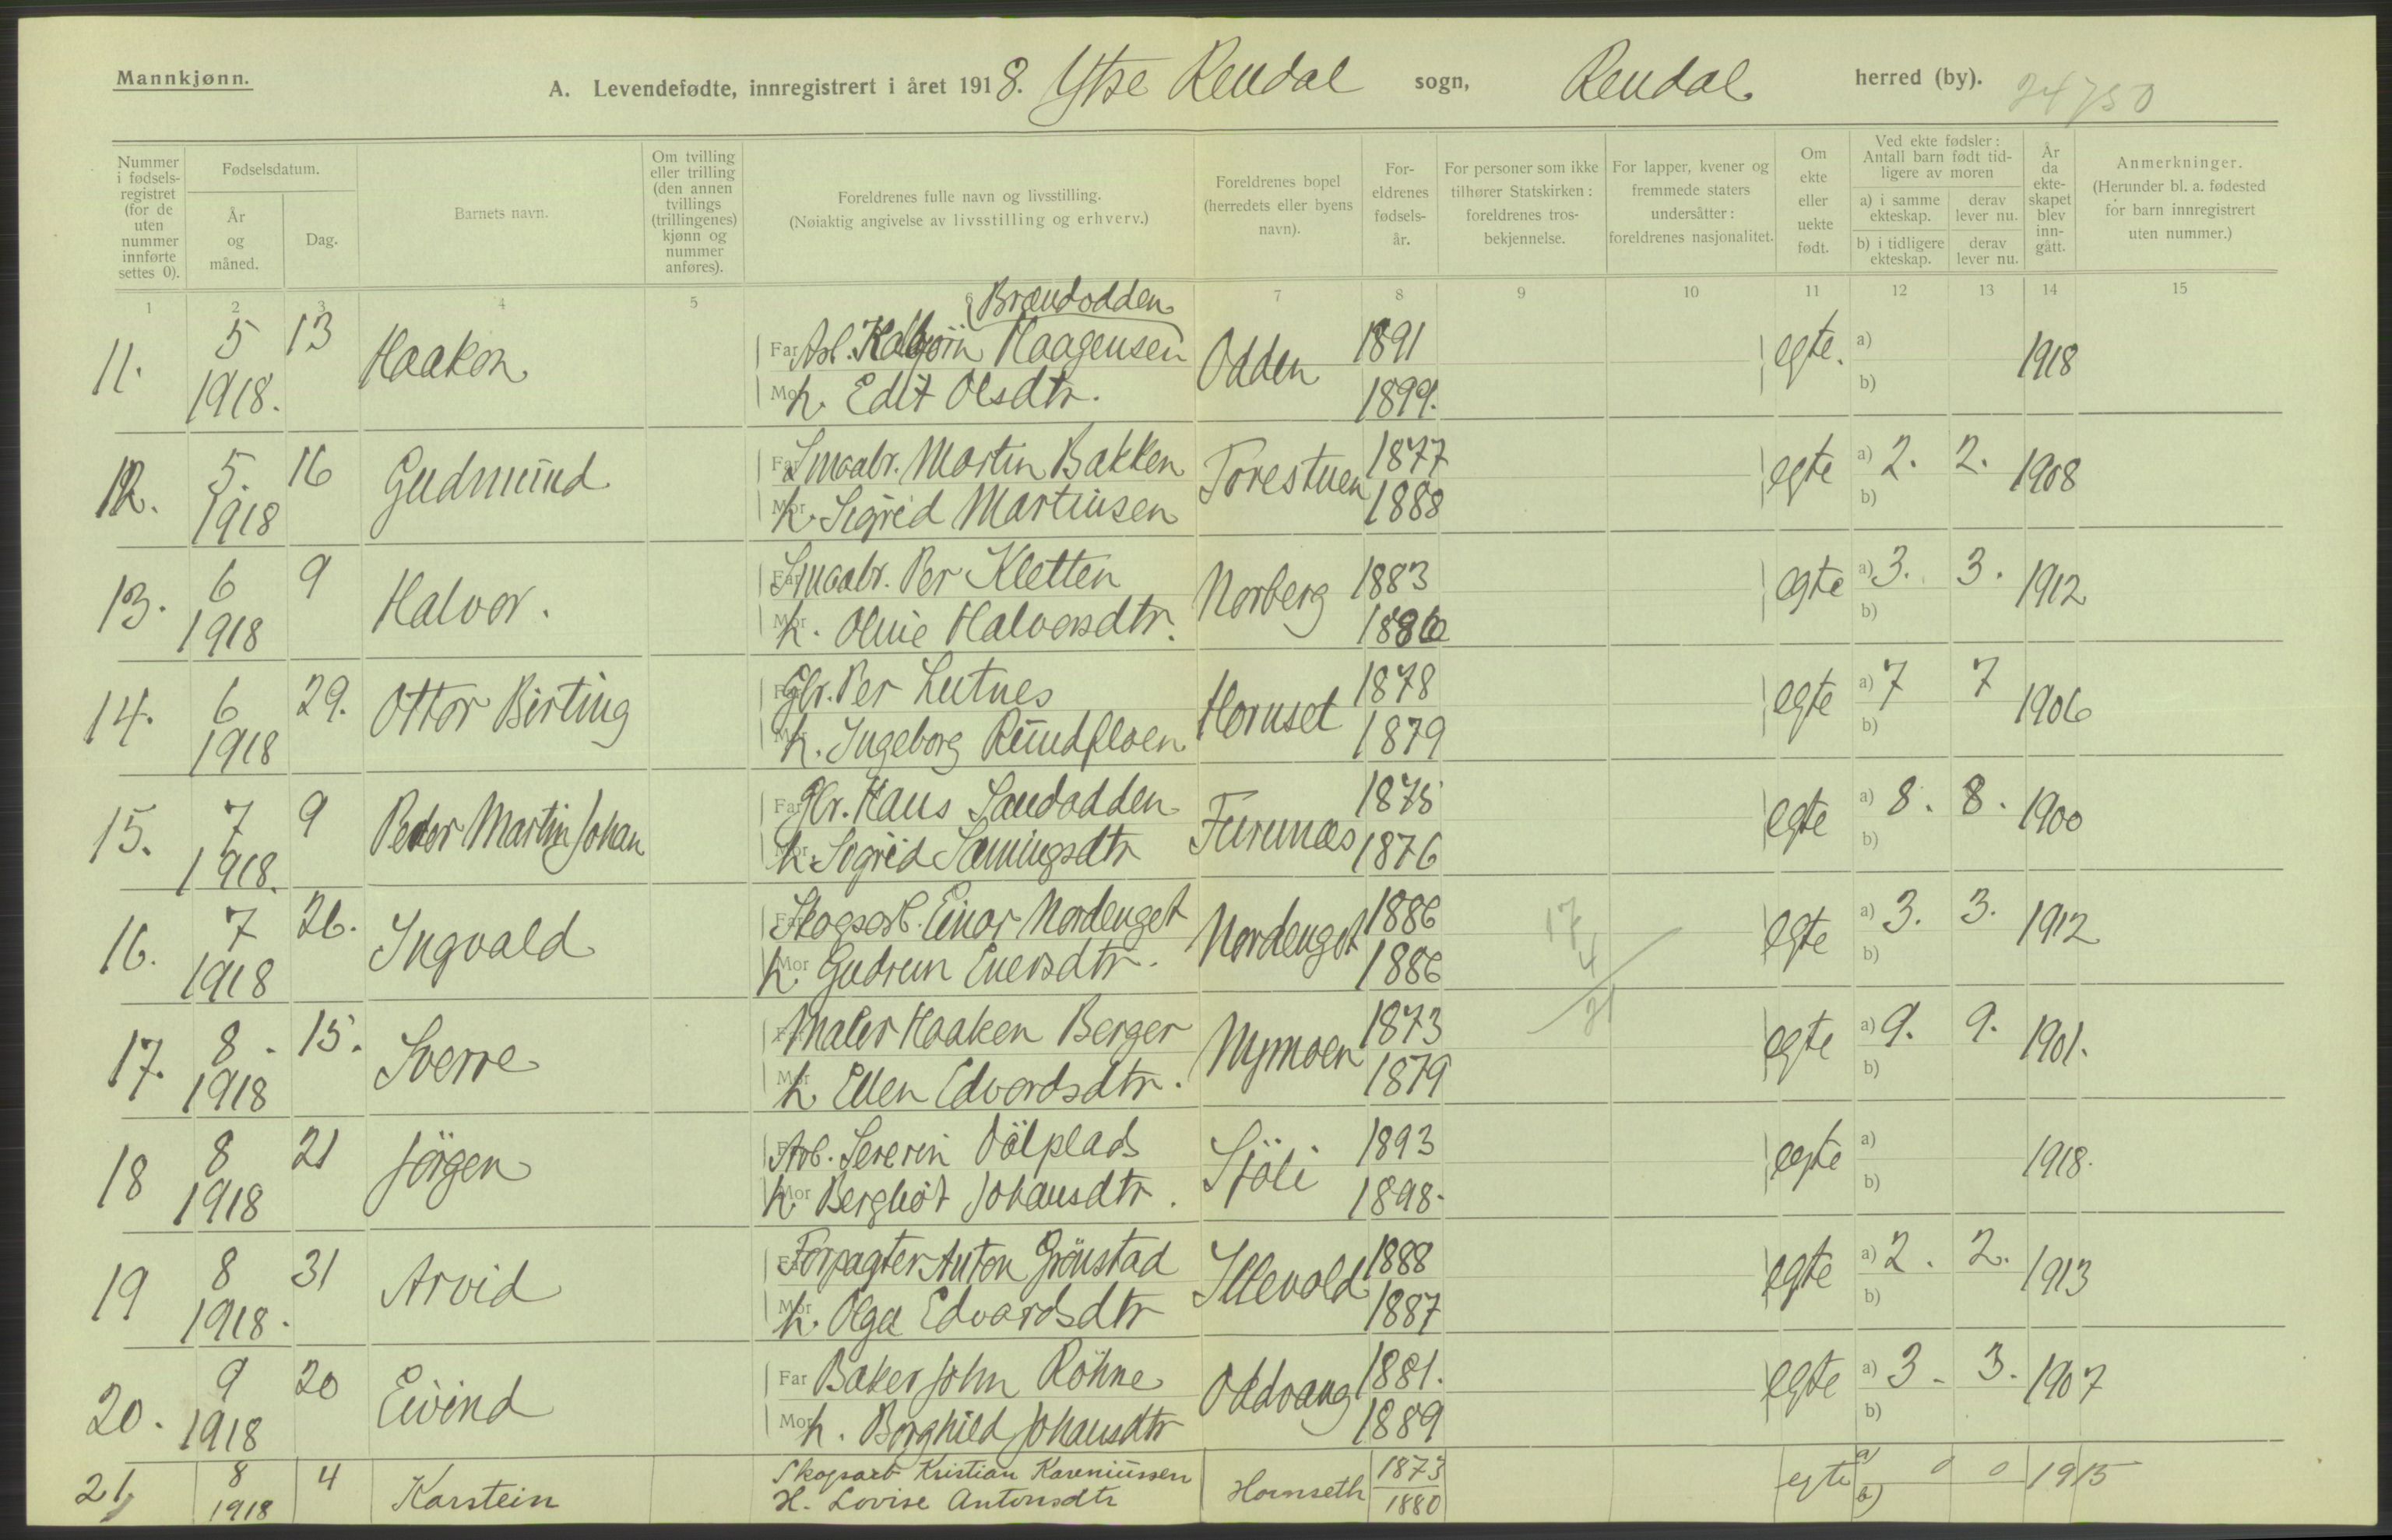 Mannkjønn.
A. Levendefødte, innregistrert i året 1918. Ytre Rendal sogn, Rendal herred (by). 24750
Nummer i fødselsregistret (for de uten nummer innførte settes 0).
Fødselsdatum.
År og måned.
Dag.
Barnets navn.
Om tvilling eller trilling (den annen tvillings (trillingenes) kjønn og nummer anføres).
Foreldrenes fulle navn og livsstilling.
(Nøiaktig angivelse av livsstilling og erhverv.)
Foreldrenes bopel (herredets eller byens navn).
Foreldrenes fødselsår.
For personer som ikke tilhører Statskirken: foreldrenes trosbekjennelse.
For lapper, kvener og fremmede staters undersåtter: foreldrenes nasjonalitet.
Om ekte eller uekte født.
Ved ekte fødsler: Antall barn født tidligere av moren
a) i samme ekteskap.
derav lever nu.
b) i tidligere ekteskap.
derav lever nu.
År da ekteskapet blev inngått.
Anmerkninger.
(Herunder bl. a. fødested for barn innregistrert uten nummer.)
1 2 3 4 5 6 7 8 9 10 11 12 13 14 15
Brændodden
11. 5 13 Haakon Far Arb. Haagensen Odden 1891 egte. a) 1918
1918. Mor h. Edit Olsdtr. 1899. b)
12. 5. 16 Gudmund Far Smaabr. Martin Bakken Torestuen 1877 egte a) 2. 2. 1908
1918 Mor h. Sigrid Martinsen 1888 b)
13. 6 9 Halvor. Far Smaabr. Per Kletten Norberg 1883 egte a) 3. 3. 1912
1918 Mor h. Oline Halvorsdtr. 1886 b)
14. 6 29. Ottor Birting Far Gbr. Per Lutnes Hornset 1878 egte a) 7 7 1906
1918 Mor h. Ingeborg Rundfloen 1879 b)
15. 7 9 Peder Martin Johan Far Gbr. Hans Sandodden Furunæs 1875 egte a) 8. 8. 1900
1918. Mor h. Sigrid Sæmingsdtr 1876 b)
16. 7 26. Ingvald Far Skogsarb. Einar Nordenget Nordenget 1886 17 egte a) 3. 3. 1912
1918 Mor h. Gudrun Enersdtr. 1886 4 b)
17. 8. 15. Sverre Far Maler Haaken Berger Nymoen 1873 21 egte a) 9. 9. 1901.
1918 Mor h. Ellen Edvardsdtr. 1879 b)
18 8 21 Jörgen Far Arb. Severin Völplads Sjöli 1893 egte a) 1918.
1918 Mor h. Bergliot Johansdtr. 1898. b)
19 8 31 Arvid Far Forpagter Anton Grönstad Illevold 1888 egte a) 2. 2. 1913
1918. Mor h. Olga Edvardsdtr 1887 b)
20. 9 20 Eivind Far Baker John Röhne Oddvang 1881. egte a) 3. 3. 1907
1918 Mor h. Borghild Johansdtr 1889 b)
21, 8 4 Karstein Skogsarb Kristian Kareniussen Hornseth 1873 egte a) 0 0 1915
1918 H. Lovise Antonsdtr 1880 b)